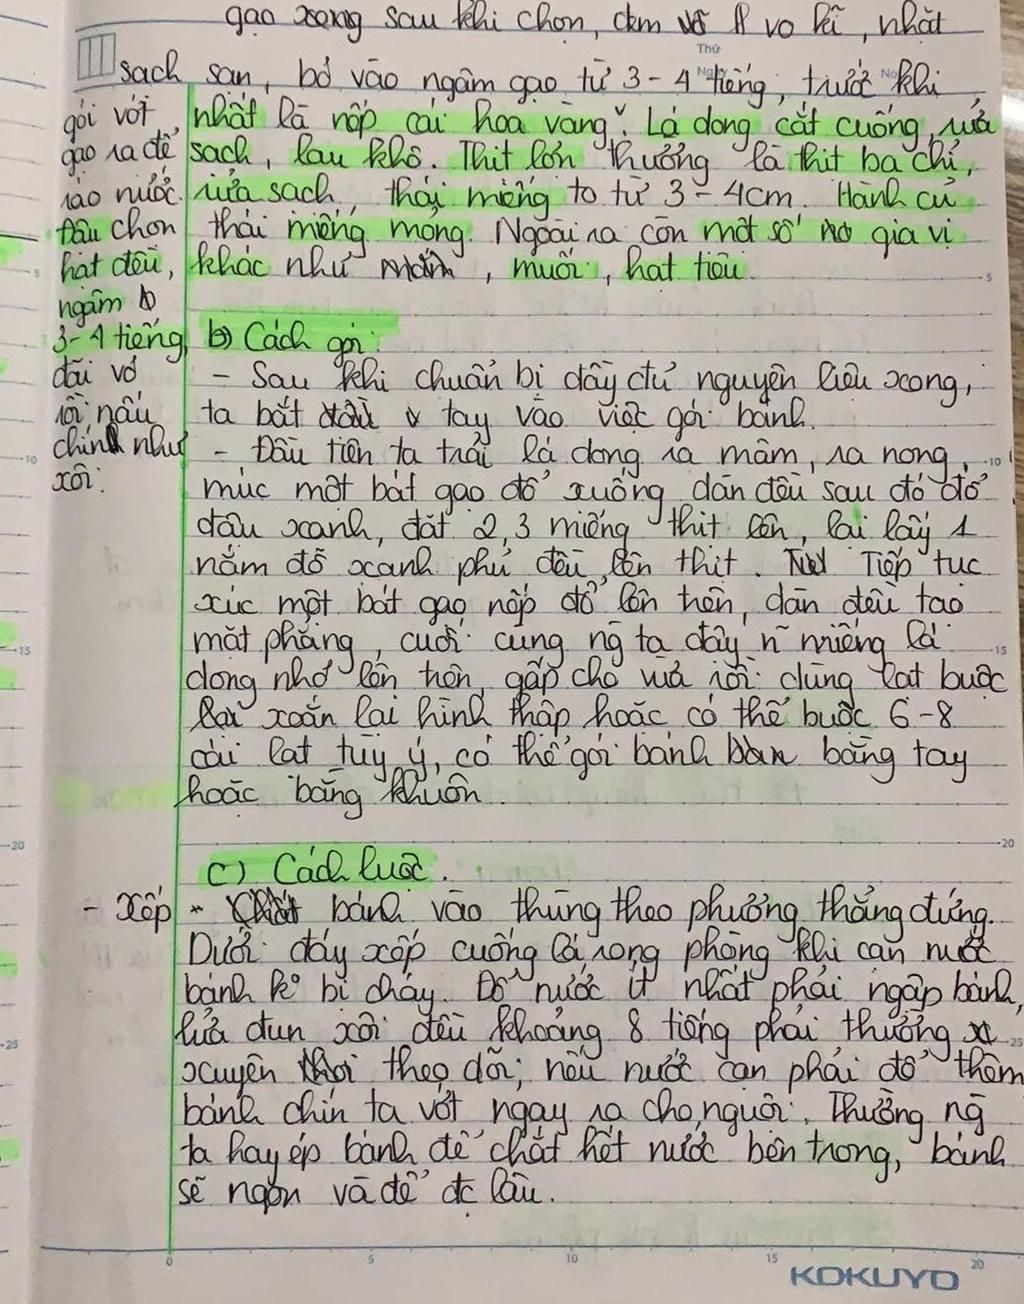 gạo xong sau khi chọn, đem vo kĩ, nhặt
sạch sạn, bỏ vào ngâm gạo từ 3-4 tiếng, trước khi
gói vớt
gạo ra để
ráo nước.
Đậu chọn
hạt đều,
ngâm
3-4 tiếng
đãi vỏ
rồi nấu
chín như
xôi.
nhất là nếp cái hoa vàng". Lá dong cắt cuống, rửa
sạch, lau khô. Thịt lợn thường là thịt ba chỉ,
rửa sạch, thái miếng to từ 3-4cm. Hành củ
thái miếng mỏng. Ngoài ra còn một số gia vị
khác như mắm, muối, hạt tiêu.
b) Cách gói:
- Sau khi chuẩn bị đầy đủ nguyên liệu xong,
ta bắt đầu tay vào việc gói bánh.
- Đầu tiên ta trải lá dong ra mâm, ra nong,
múc một bát gạo đổ xuống dàn đều sau đó đổ
đậu xanh, đặt 2,3 miếng thịt lên, lại lấy 1
nắm đỗ xanh phủ đều lên thịt. Tiếp tục
xúc một bát gạo nếp đổ lên trên, dàn đều tạo
mặt phẳng, cuối cùng ng ta đậy n~ miếng lá
dong nhỏ lên trên, gấp cho vừa rồi dùng lạt buộc
xoắn lại hình thập hoặc có thể buộc 6-8
cái lạt tùy ý, có thể gói bánh bằng tay
hoặc bằng khuôn.
c) Cách luộc.
- Xếp bánh vào thùng theo phương thẳng đứng.
Dưới đáy xếp cuống lá rong phòng khi cạn nước
bánh ko bị cháy. Đổ nước ít nhất phải ngập bánh,
lửa đun sôi đều khoảng 8 tiếng phải thường
xuyên theo dõi, nếu nước cạn phải đổ thêm
bánh chín ta vớt ngay ra cho nguội. Thường ng
ta hay ép bánh để chắt hết nước bên trong, bánh
sẽ ngon và để đc lâu.
0 5 10 15 20
KOKUYO